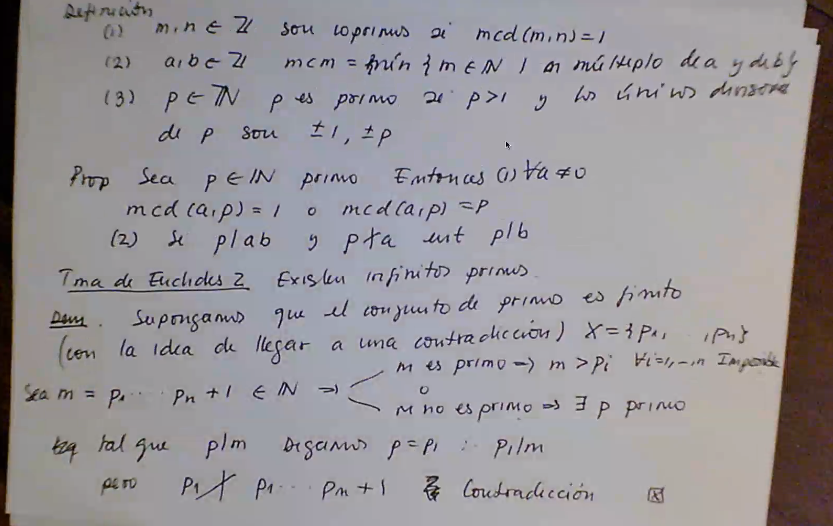 Definición
(1) m, n ∈ ℤ son coprimos si mcd(m,n)=1
(2) a, b ∈ ℤ mcm = mín { m ∈ ℕ | m múltiplo de a y de b}
(3) p ∈ ℕ p es primo si p>1 y los únicos divisores
de p son ±1, ±p
Prop Sea p ∈ ℕ primo Entonces (1) ∀a ≠ 0
mcd(a,p) = 1 o mcd(a,p) = p
(2) Si p|ab y p∤a ent p|b
Tma de Euclides 2 Existen infinitos primos.
Dem. Supongamos que el conjunto de primo es finito
(con la idea de llegar a una contradicción) X = {p₁, ..,pn}
m es primo ⇒ m > pi ∀i=1,-,n Imposible
Sea m = p₁ ... pn + 1 ∈ ℕ ⇒ o
m no es primo ⇒ ∃ p primo
tal que p|m Digamos p = p₁ ∴ p₁|m
pero p₁ ∤ p₁ ... pn + 1 Contradicción